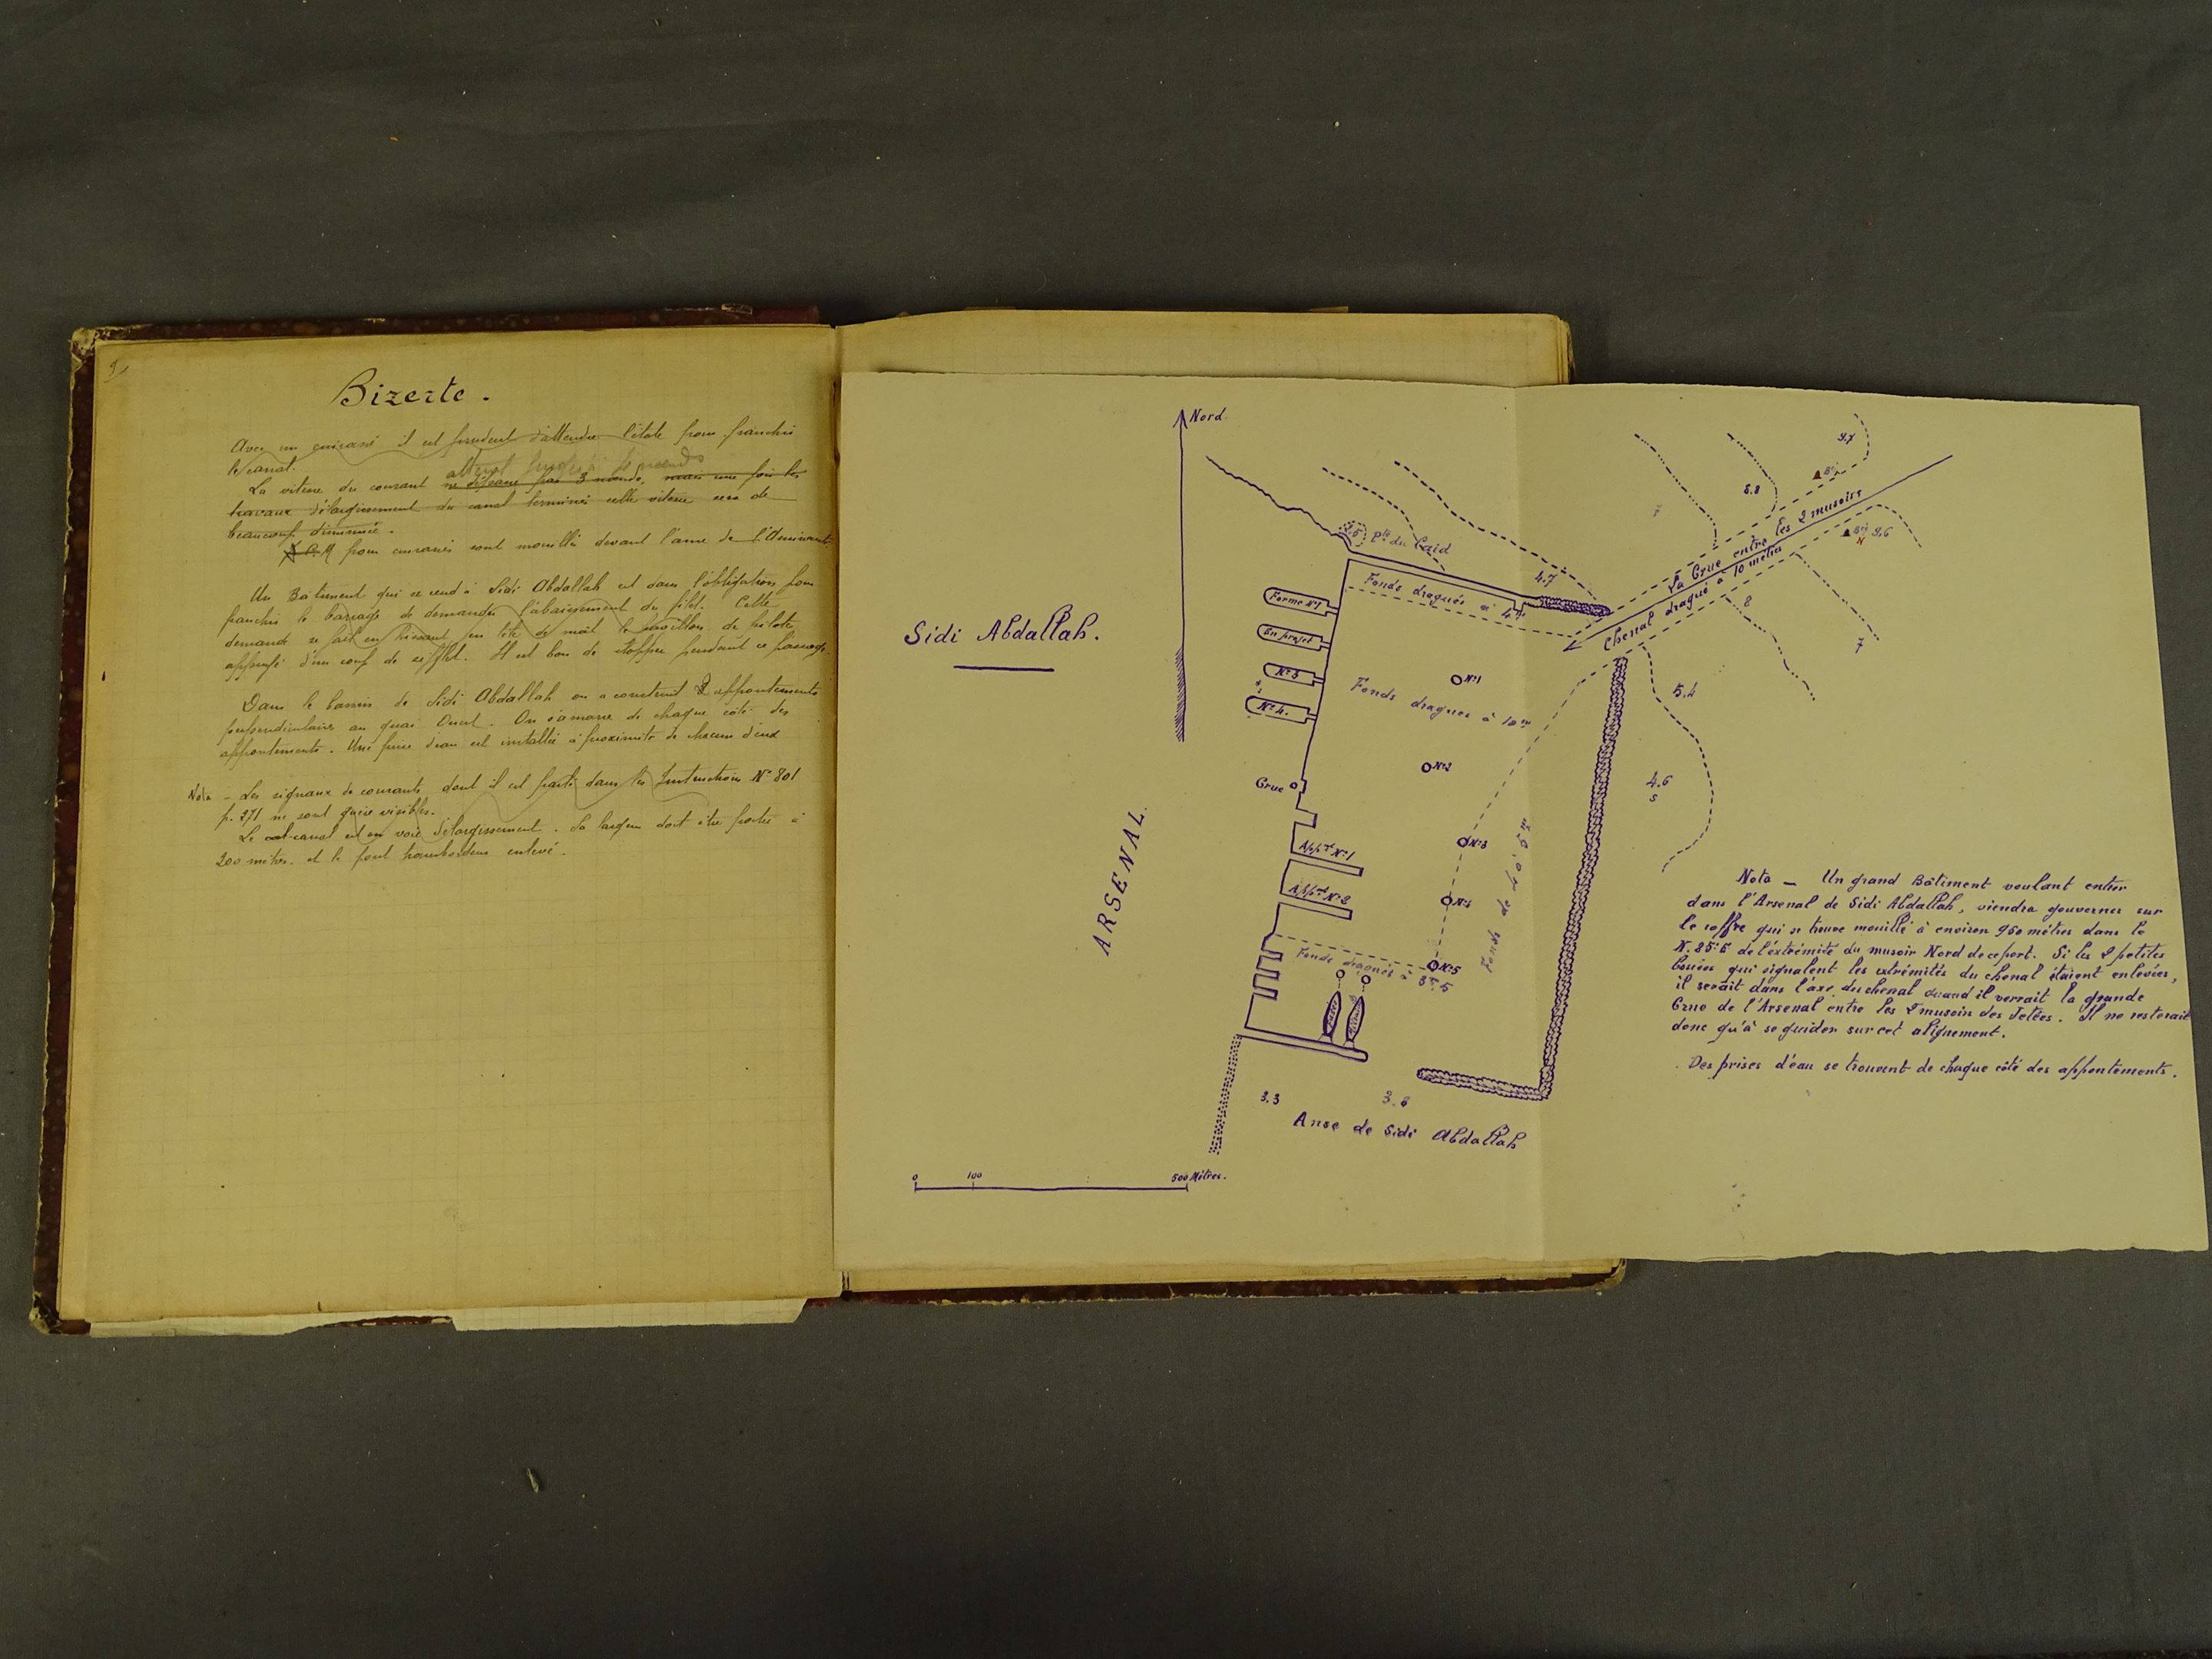 Bizerte.
Avec un cuirassé il est prudent d'attendre l'étale pour franchir
le canal.
atteint jusqu'à 6 nœuds
La vitesse du courant ne dépasse pas 3 nœuds, mais une fois les
travaux d'élargissement du canal terminés cette vitesse sera de
beaucoup diminuée.
pour cuirassés sont mouillés devant l'anse de l'Amirauté.
Un Bâtiment qui se rend à Sidi Abdallah est dans l'obligation pour
franchir le barrage de demander l'abaissement du filet. Cette
demande se fait en hissant en tête de mât le pavillon de pilote
appuyé d'un coup de sifflet. Il est bon de stopper pendant ce passage.
Dans le bassin de Sidi Abdallah on a construit 2 appontements
perpendiculaires au quai Ouest. On s'amarre de chaque côté des
appontements. Une prise d'eau est installée à proximité de chacun d'eux
Nota - Les signaux de courants dont il est parlé dans les Instructions N° 801
p. 271 ne sont guère visibles.
Le canal est en voie d'élargissement. Sa largeur doit être portée à
200 mètres. et le pont transbordeur enlevé.
Nord
Sidi Abdallah.
ARSENAL
Pte du Caïd
Fonds dragués à 4m
Forme N°1
En projet
N° 3
N° 4.
Fonds dragués à 10m
N°1
N°2
N°3
N°4
N°5
Grue
Appt N°1
Appt N°2
Fonds dragués à 8m,5
Fonds de 4 à 5m
3.3
3.8
Anse de Sidi Abdallah
0 100 500 Mètres.
4.7
8.8
9.7
La Grue entre les 2 musoirs
Chenal dragué à 10 mètres
9.6
8
7
5.4
4.6
S
Nota - Un grand Bâtiment voulant entrer
dans l'Arsenal de Sidi Abdallah, viendra gouverner sur
le coffre qui se trouve mouillé à environ 960 mètres dans le
N. 25° E de l'extrémité du musoir Nord de ce port. Si les 2 petites
bouées qui signalent les extrémités du chenal étaient enlevées,
il serait dans l'axe du chenal quand il verrait la grande
Grue de l'Arsenal entre les 2 musoirs des Jetées. Il ne resterait
donc qu'à se guider sur cet alignement.
Des prises d'eau se trouvent de chaque côté des appontements.